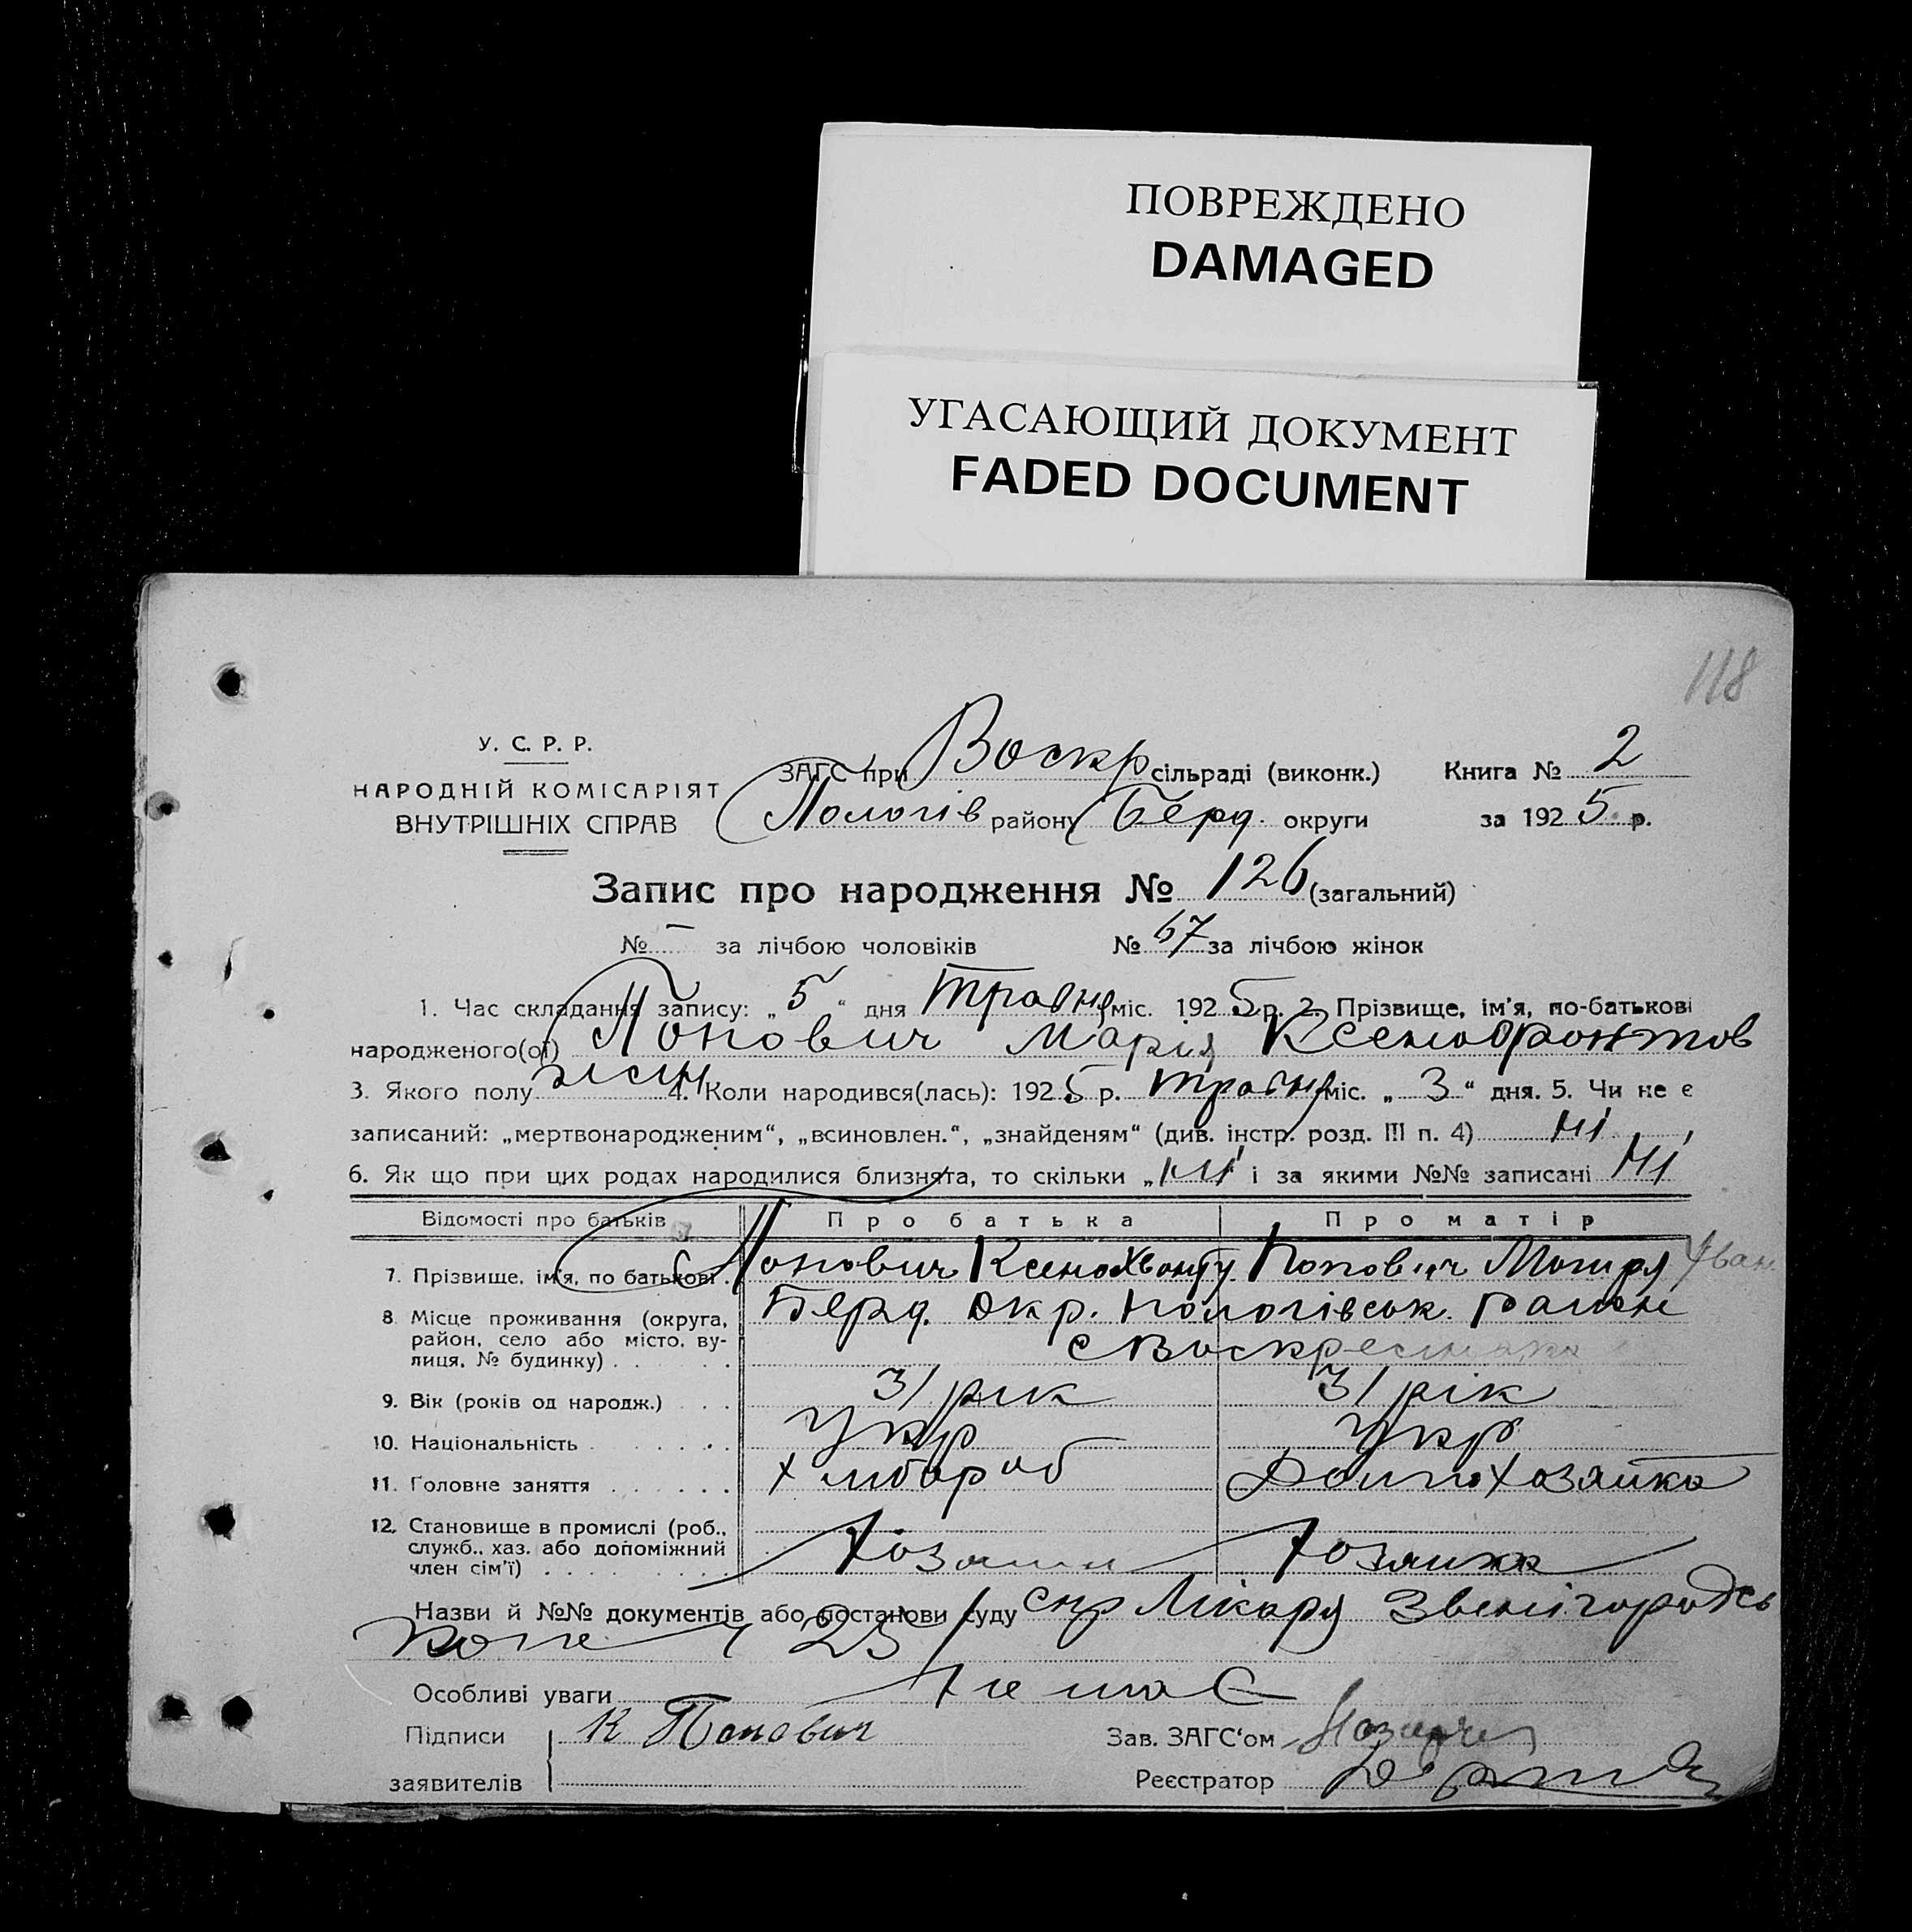 ПОВРЕЖДЕНО
DAMAGED
УГАСАЮЩИЙ ДОКУМЕНТ
FADED DOCUMENT
118
У. С. Р. Р.
НАРОДНІЙ КОМІСАРІЯТ
ВНУТРІШНІХ СПРАВ
ЗАГС при Воскр сільраді (виконк.) Книга № 2
Пологів району Берд. округи за 1925 р.
Запис про народження № 126 (загальний)
№ - за лічбою чоловіків № 67 за лічбою жінок
1. Час складання запису: „5“ дня Травня міс. 1925 р. 2. Прізвище, ім'я, по-батькові
народженого(ої) Попович Марія Ксенофонтов
3. Якого полу жін 4. Коли народився(лась): 1925 р. травня міс. „3“ дня. 5. Чи не є
записаний: „мертвонародженим“, „всиновлен.“, „знайденям“ (див. інстр. розд. III п. 4) ні
6. Як що при цих родах народилися близнята, то скільки „ні“ і за якими №№ записані ні
Відомості про батьків Про батька Про матір
7. Прізвище, ім'я, по батькові Попович Ксенохвонт Попович Мотря Іван
8. Місце проживання (округа, район, село або місто, вулиця, № будинку) Берд. Окр. Пологівськ. район
с Воскресенка
9. Вік (років од народж.) 31 рік 31 рік
10. Національність Укр Укр
11. Головне заняття хлібороб Домохозяйка
12. Становище в промислі (роб., служб., хаз. або допоміжний член сім'ї) Хозяин Хозяика
Назви й №№ документів або постанови суду спр Лікаря Звенігородсь
25
Особливі уваги Немає
Підписи К Попович Зав. ЗАГС'ом
заявителів Реєстратор